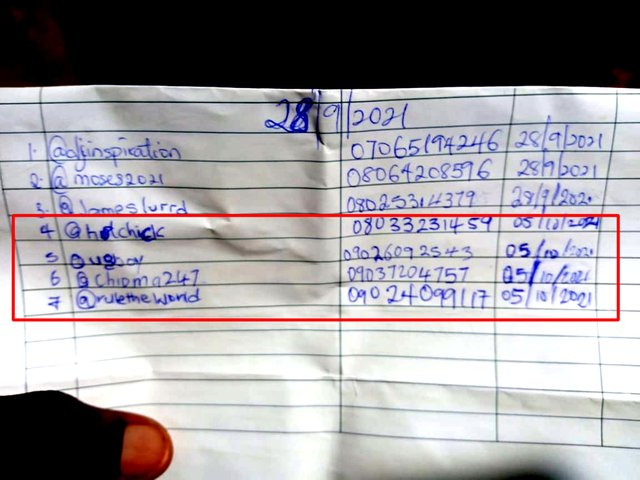 28/9/2021
1. 07065194246 28/9/2021
2. @moses2021 08064208596 28/9/2021
3. 08025314379 28/9/2021
4 @hotchick 08033231459 05/10/2021
5 09026092543 05/10/2021
6 @Chipma247 09037204757 05/10/2021
7 @ruletheworld 09024099117 05/10/2021